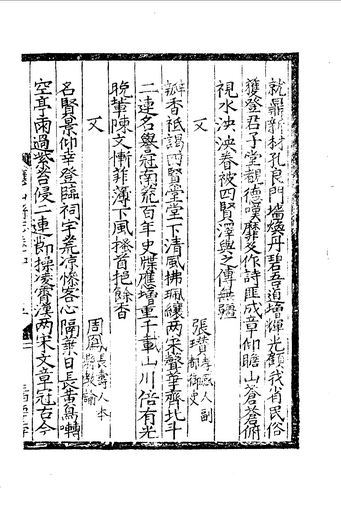 就鼎新材孔良門墻煥丹碧吾道增輝光顧我省民俗
獲登君子堂觀德嘆靡及作詩匪成章仰瞻山蒼蒼俯
視水泱泱眷被四賢澤與之傳無疆
又
張璝孝感人副都御史
瓣香祗謁四賢堂堂下清風拂珮纕两宋聲華齊北斗
二連名譽冠南荒百年史牒應增重千載山川倍有光
晚輩陳文慚菲薄下風搔首挹餘香
又
周鳳長壽人本縣教諭
名賢景仰幸登臨祠宇荒凉慘客心隔葉日長黃鳥囀
空亭雨過紫苔侵二連節操凌霄漢两宋文章冠古今